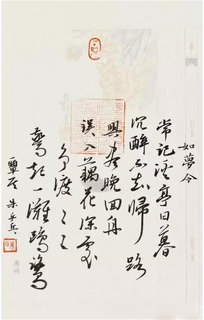 如夢令
常記溪亭日暮
沉醉不知歸路
興盡晚回舟
誤入藕花深處
爭渡〻〻
驚起一灘鷗鷺